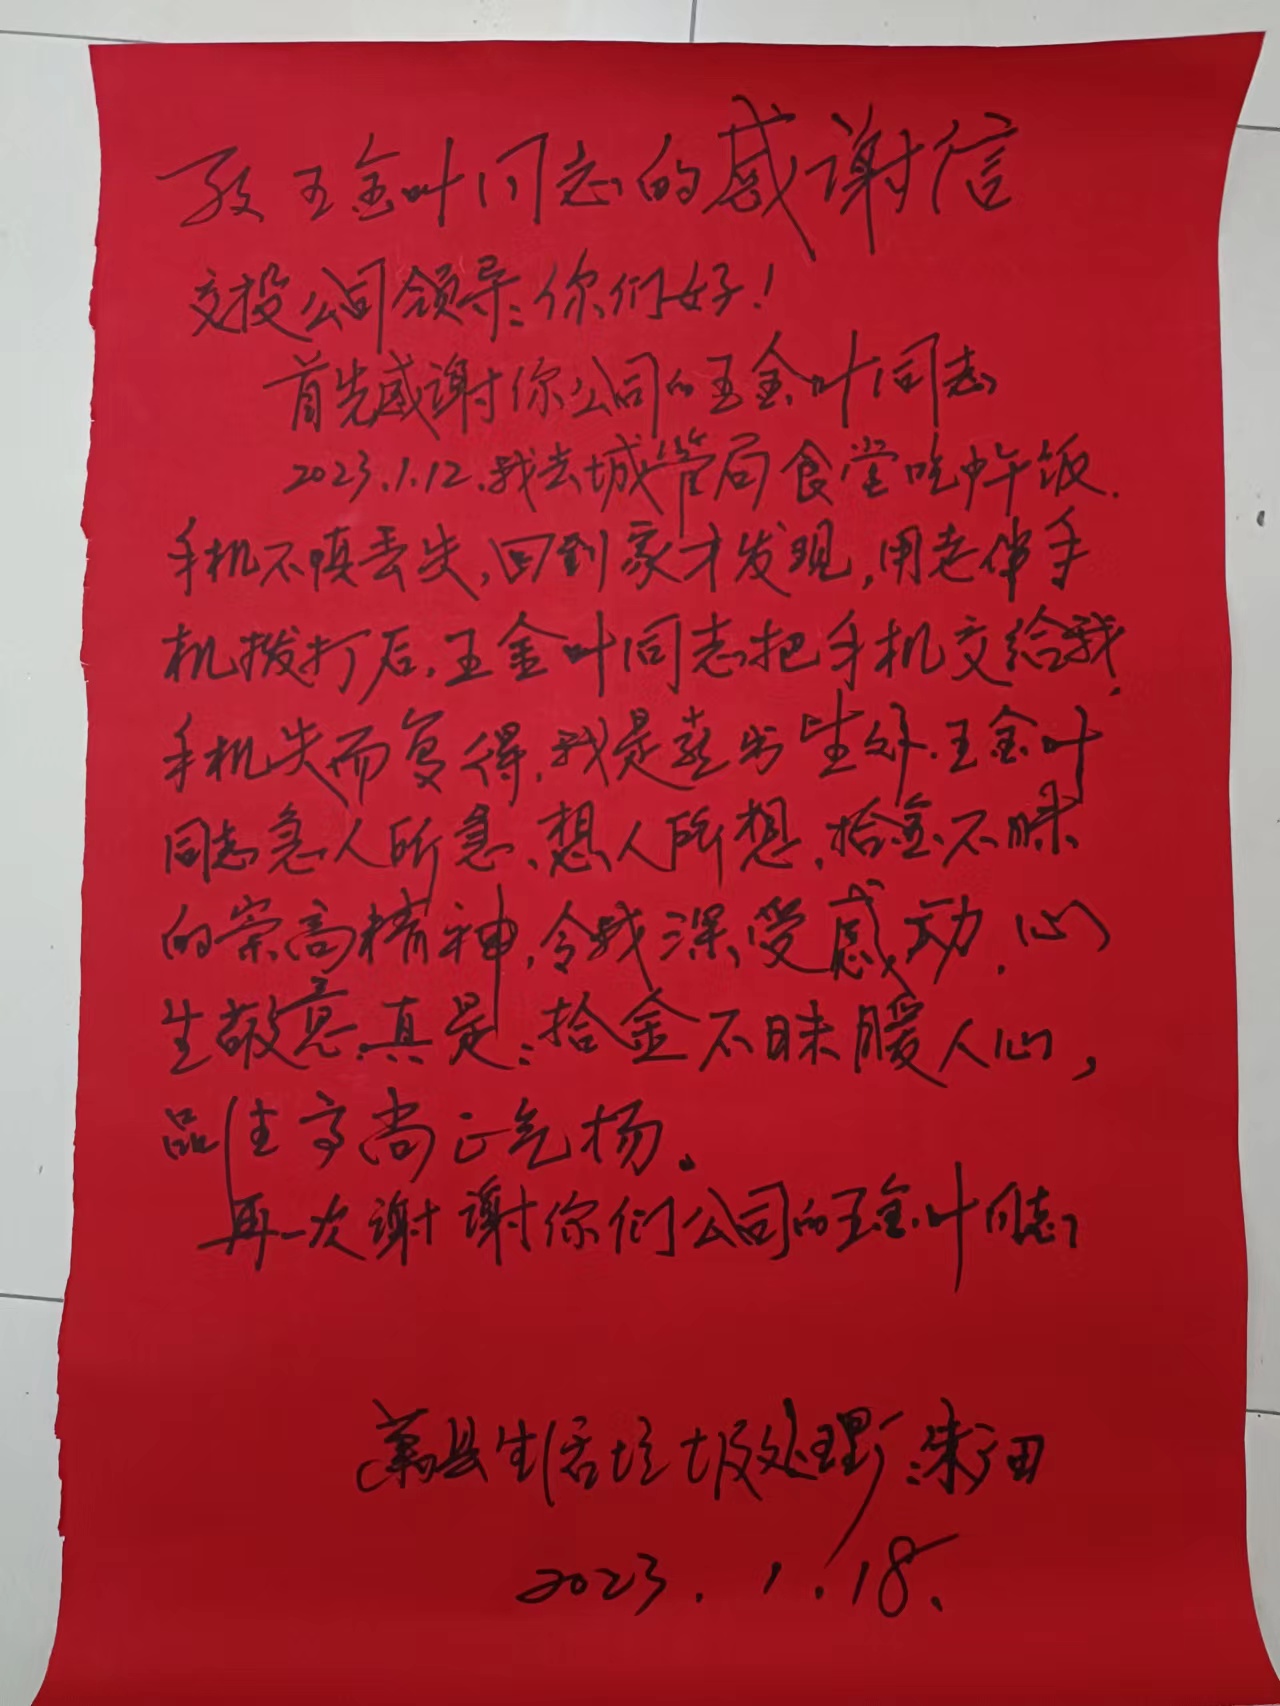 致王金叶同志的感谢信
交投公司领导:你们好!
首先感谢你公司的王金叶同志
2023.1.12.我去城管局食堂吃中午饭.
手机不慎丢失,回到家才发现,用老伴手
机拨打后,王金叶同志把手机交给我.
手机失而复得,我是喜出望外.王金叶
同志急人所急、想人所想,拾金不昧
的崇高精神,令我深受感动.心
生敬意.真是:拾金不昧暖人心,
品性高尚正气扬。
再一次谢谢你们公司的王金叶同志
萧县生活垃圾处理厂:朱
2023.1.18.